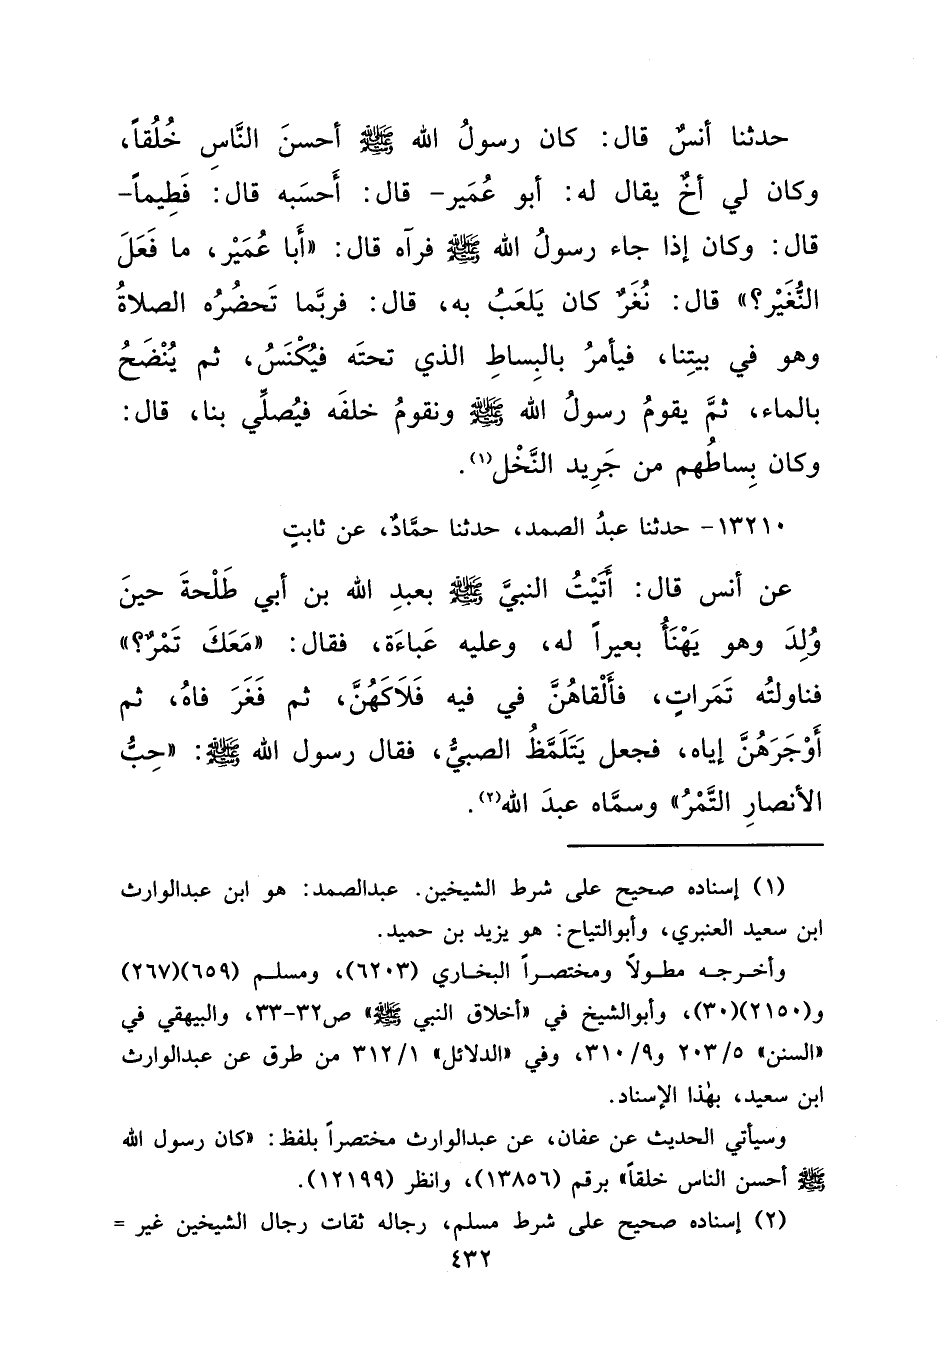 حدثنا أنسٌ قال: كان رسولُ الله ﷺ أحسنَ النَّاسِ خُلُقاً،
وكان لي أخٌ يقال له: أبو عُمَير- قال: أَحسَبه قال: فَطِيماً-
قال: وكان إذا جاء رسولُ الله ﷺ فرآه قال: «أَبا عُمَيْر، ما فَعَلَ
النُّغَيْر؟» قال: نُغَرٌ كان يَلعَبُ به، قال: فربَّما تَحضُرُه الصلاةُ
وهو في بيتِنا، فيأمرُ بالبِساطِ الذي تحتَه فيُكْنَسُ، ثم يُنْضَحُ
بالماء، ثمَّ يقومُ رسولُ الله ﷺ ونقومُ خلفَه فيُصلِّي بنا، قال:
وكان بِساطُهم من جَرِيد النَّخْل(١).
١٣٢١٠- حدثنا عبدُ الصمد، حدثنا حمَّادٌ، عن ثابتٍ
عن أنس قال: أَتَيْتُ النبيَّ ﷺ بعبدِ الله بن أبي طَلْحةَ حينَ
وُلِدَ وهو يَهْنَأُ بعيراً له، وعليه عَباءَة، فقال: «مَعَكَ تَمْرٌ؟»
فناولتُه تَمَراتٍ، فأَلْقاهُنَّ في فيه فَلَاكَهُنَّ، ثم فَغَرَ فاهُ، ثم
أَوْجَرَهُنَّ إياه، فجعل يَتَلَمَّظُ الصبيُّ، فقال رسول الله ﷺ: «حِبُّ
الأنصارِ التَّمْرُ» وسمَّاه عبدَ الله(٢).
(١) إسناده صحيح على شرط الشيخين. عبدالصمد: هو ابن عبدالوارث
ابن سعيد العنبري، وأبوالتياح: هو يزيد بن حميد.
وأخرجه مطولاً ومختصراً البخاري (٦٢٠٣)، ومسلم (٦٥٩)(٢٦٧)
و(٢١٥٠)(٣٠)، وأبوالشيخ في «أخلاق النبي ﷺ» ص٣٢-٣٣، والبيهقي في
«السنن» ٢٠٣/٥ و٣١٠/٩، وفي «الدلائل» ٣١٢/١ من طرق عن عبدالوارث
ابن سعيد، بهٰذا الإسناد.
وسيأتي الحديث عن عفان، عن عبدالوارث مختصراً بلفظ: «كان رسول الله
ﷺ أحسن الناس خلقاً» برقم (١٣٨٥٦)، وانظر (١٢١٩٩).
(٢) إسناده صحيح على شرط مسلم، رجاله ثقات رجال الشيخين غير =
٤٣٢